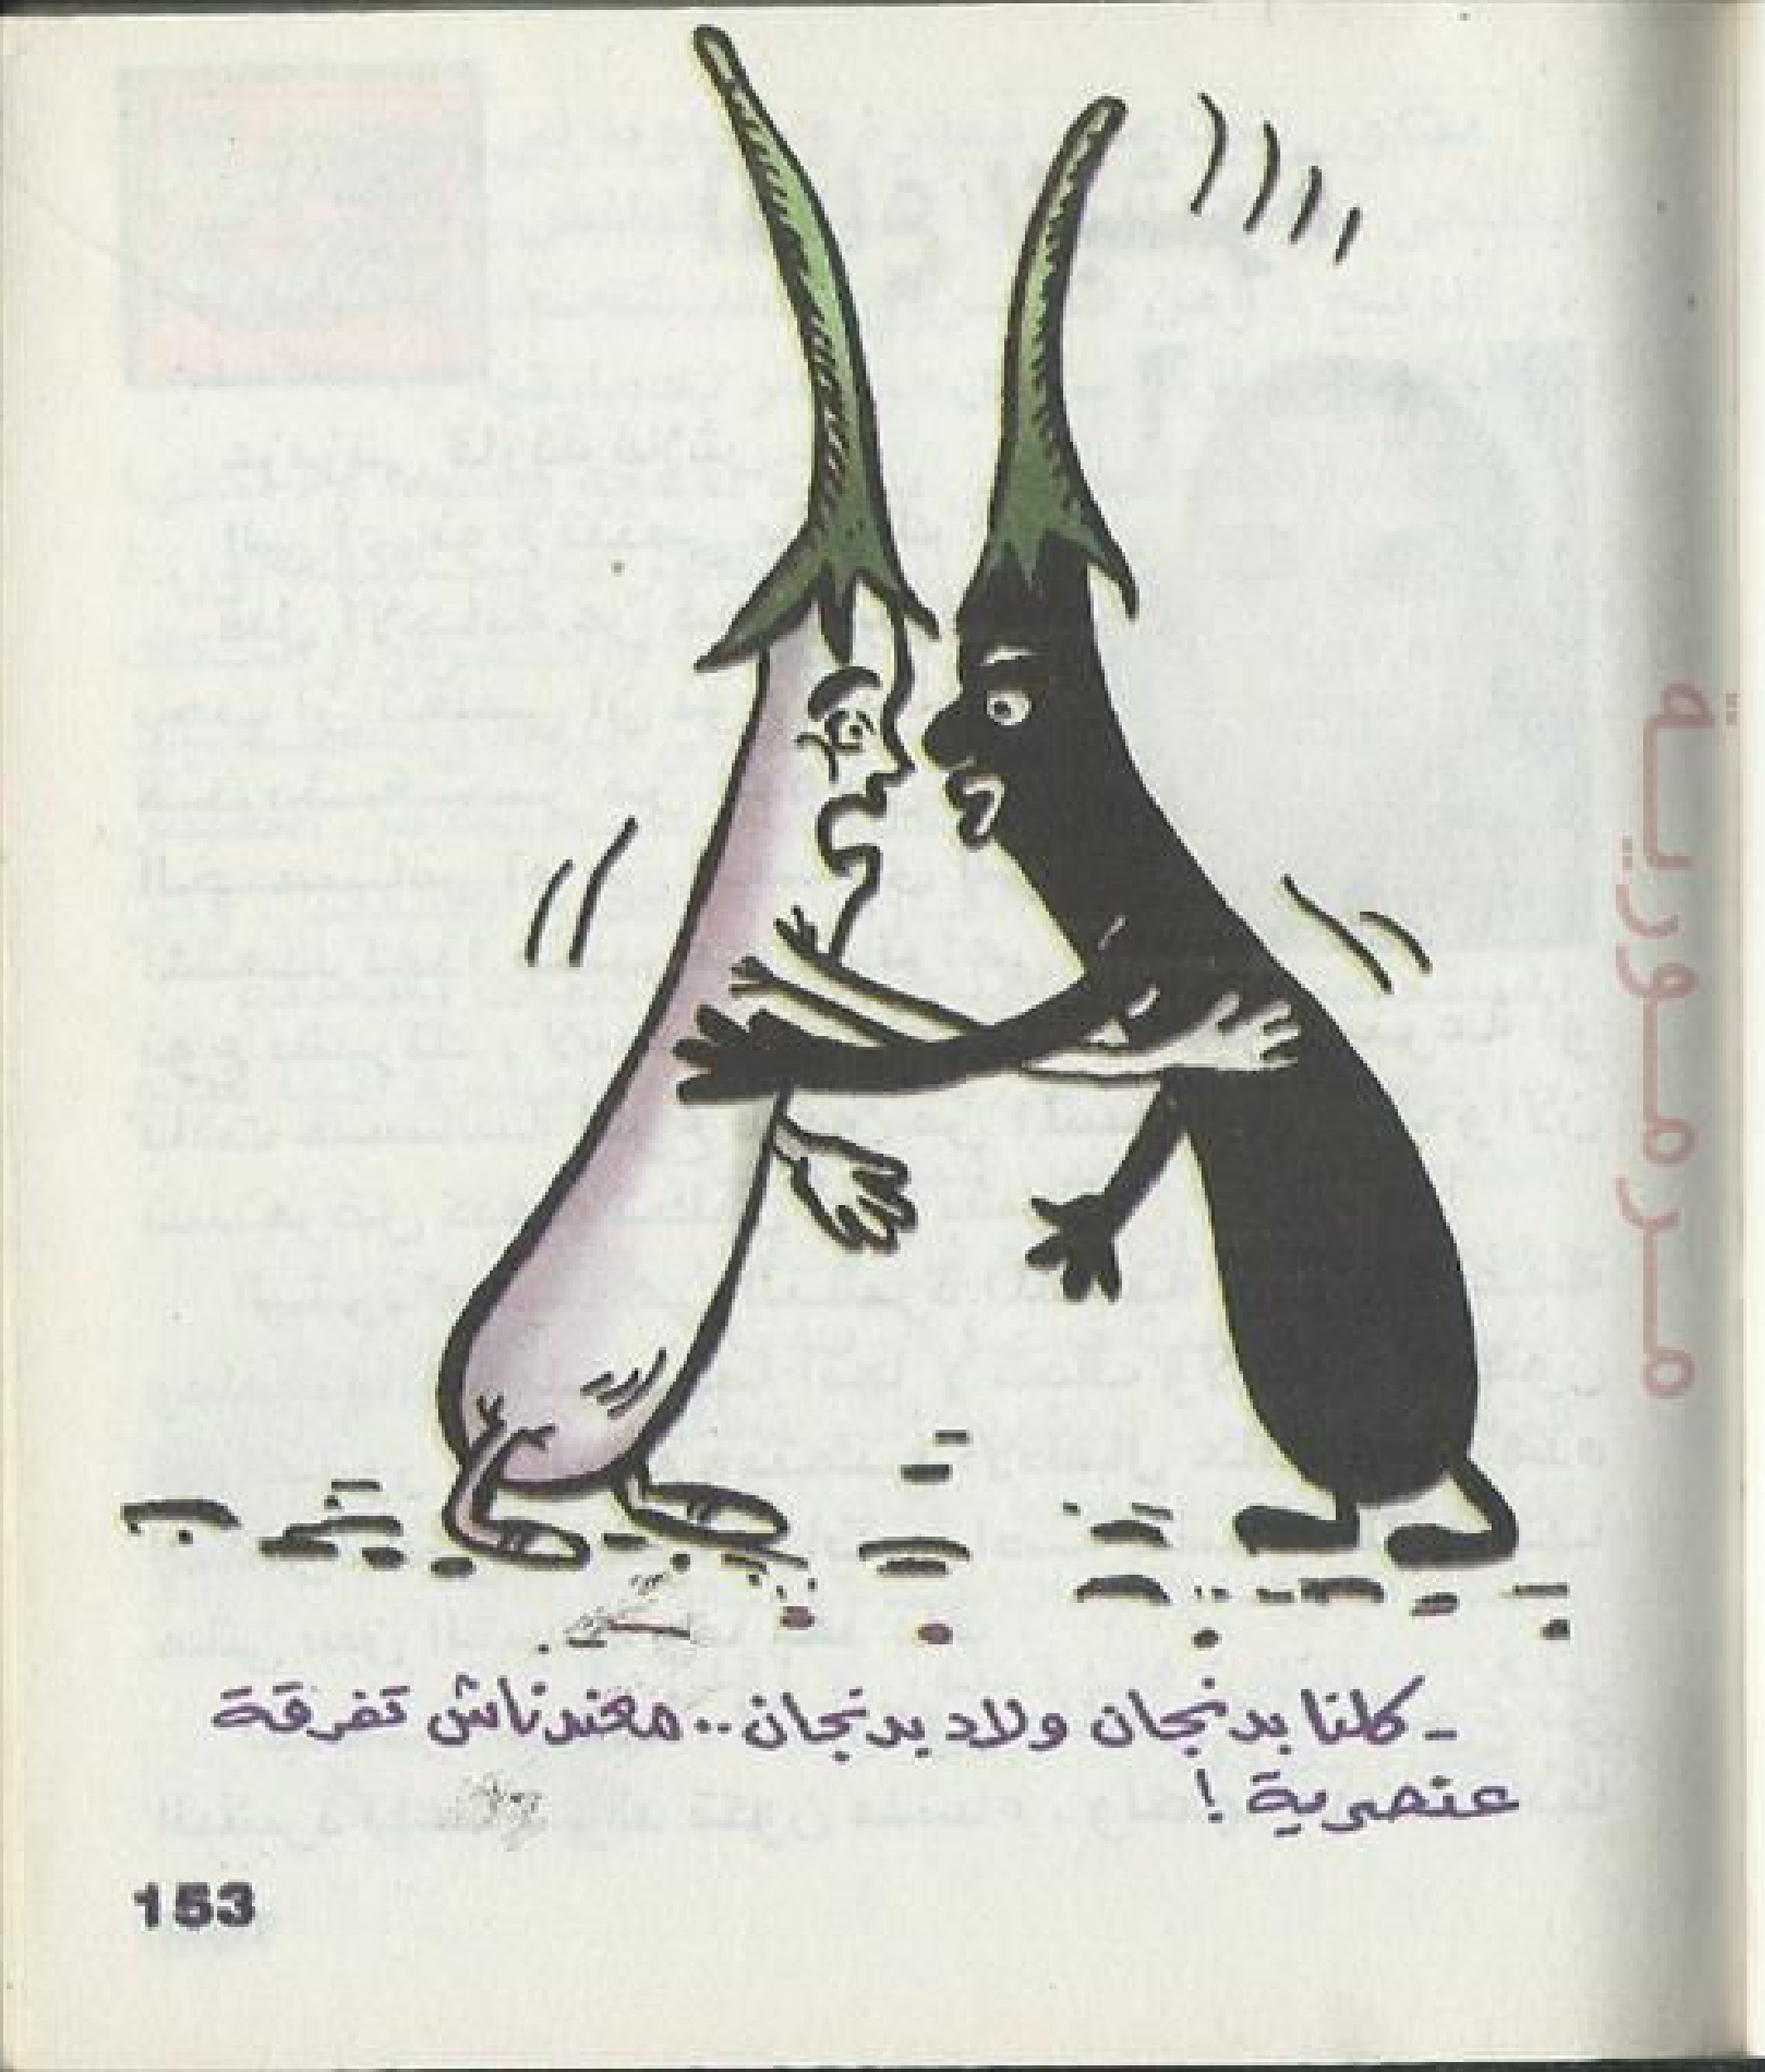 - كلنا بدنجان ولاد بدنجان .. معندناش تفرقة
عنصرية !
153
مرمورية